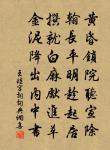 黄昏锁院听宣除
翰长平明趁起居
撰就白麻先进草
金泥降出内中书
王珪宫词词典网集